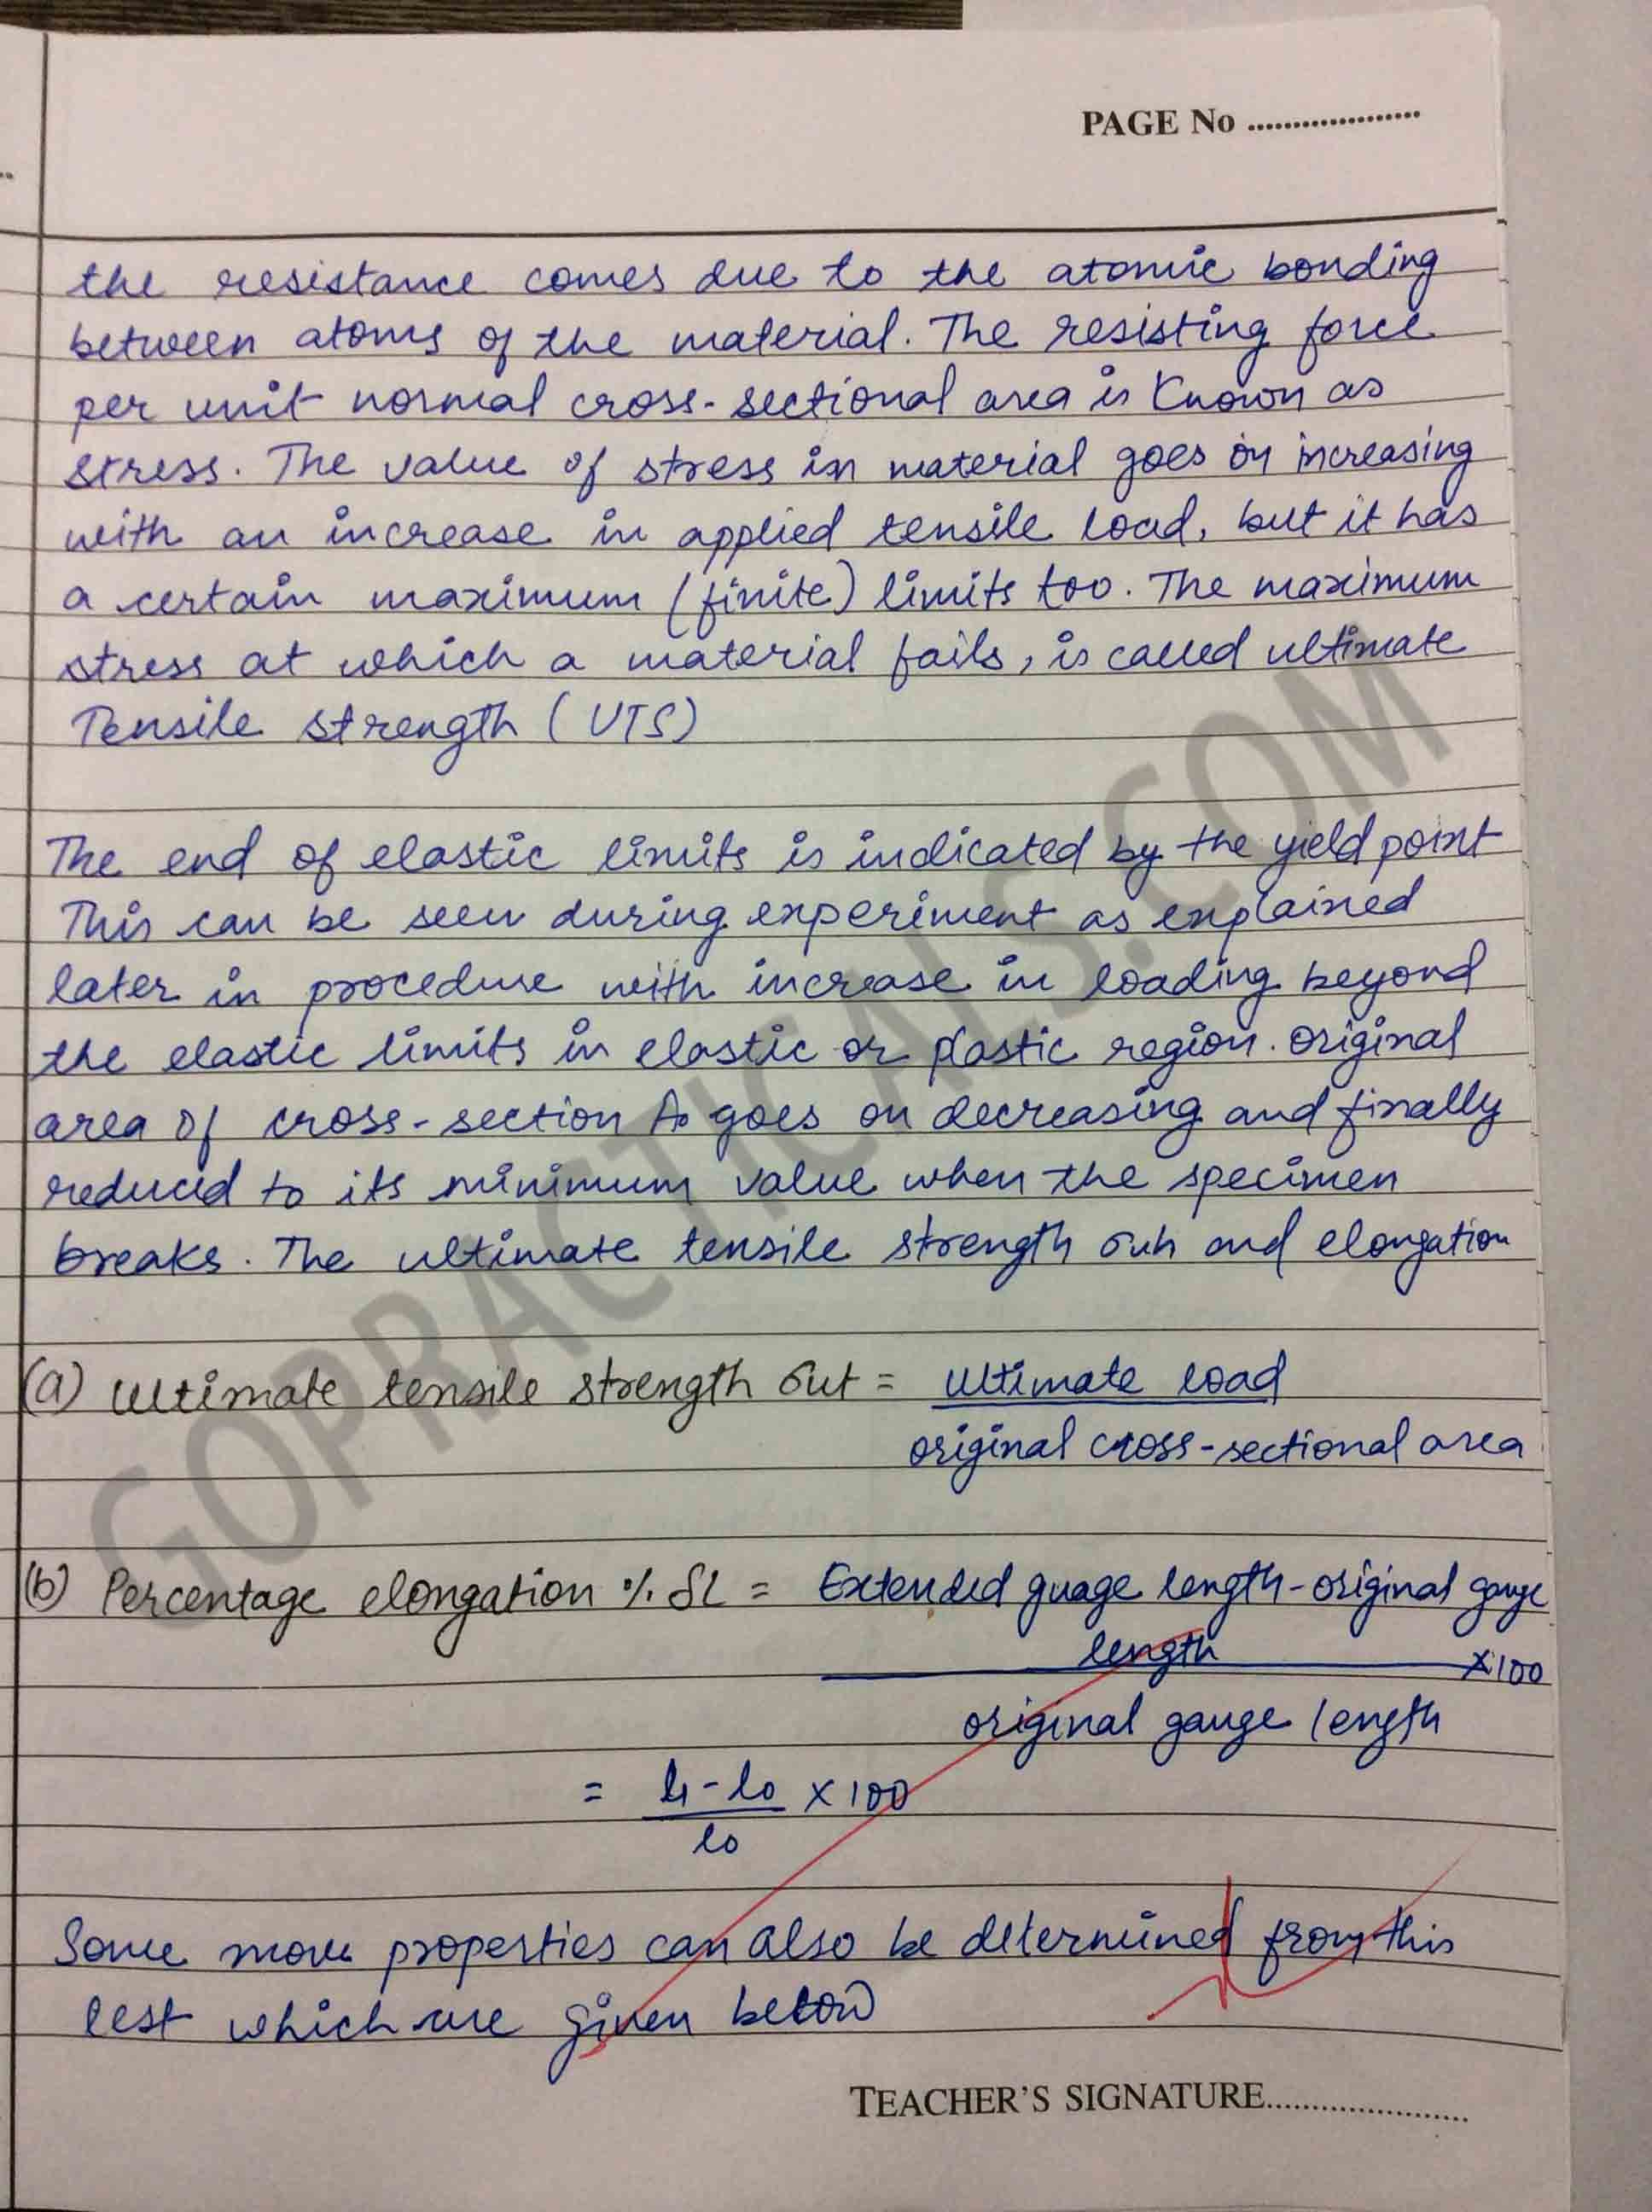 PAGE No ...................
the resistance comes due to the atomic bonding
between atoms of the material. The resisting force
per unit normal cross-sectional area is known as
stress. The value of stress in material goes on increasing
with an increase in applied tensile load, but it has
a certain maximum (finite) limits too. The maximum
stress at which a material fails, is called ultimate
Tensile strength (UTS)
The end of elastic limits is indicated by the yield point
This can be seen during experiment as explained
later in procedure with increase in loading beyond
the elastic limits in elastic or plastic region. original
area of cross-section Ao goes on decreasing and finally
reduced to its minimum value when the specimen
breaks. The ultimate tensile strength σuh and elongation
(a) Ultimate tensile strength σut = ultimate load
original cross-sectional area
(b) Percentage elongation % δL = Extended guage length-original gauge
length ×100
original gauge length
= l1-l0 × 100
l0
Some more properties can also be determined from this
test which are given below
TEACHER'S SIGNATURE......................
GOPRACTICALS.COM